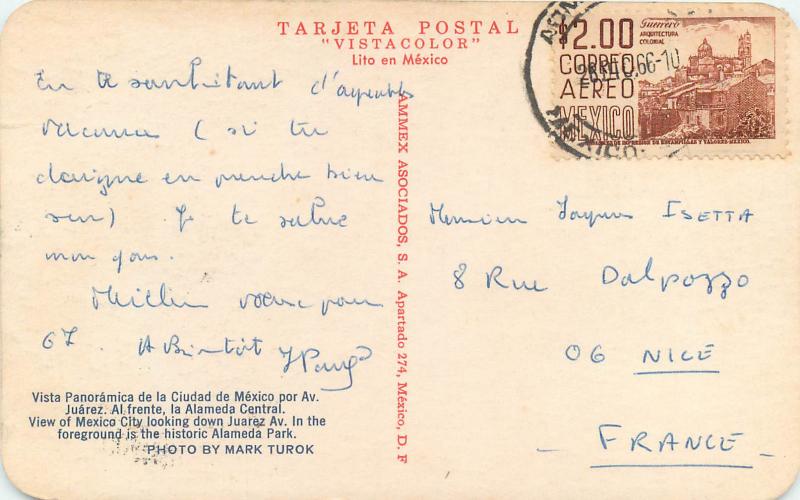 TARJETA POSTAL
"VISTACOLOR"
Lito en México
En te souhaitant d'agréables
vacances (si tu
daigne en prendre bien
sur) Je te salue
mon gars.
Meilleurs voeux pour
67. A Bientôt
Vista Panorámica de la Ciudad de México por Av.
Juárez. Al frente, la Alameda Central.
View of Mexico City looking down Juarez Av. In the
foreground is the historic Alameda Park.
PHOTO BY MARK TUROK
AMMEX ASOCIADOS, S. A. Apartado 274, México, D. F
$2.00
CORREO
AEREO
MEXICO
Guerrero
ARQUITECTURA
COLONIAL
DE IMPRESION DE ESTAMPILLAS Y VALORES-MEXICO.
66-10
MEXICO
Monsieur Jacques ISETTA
8 Rue Dalpozzo
06 NICE
FRANCE